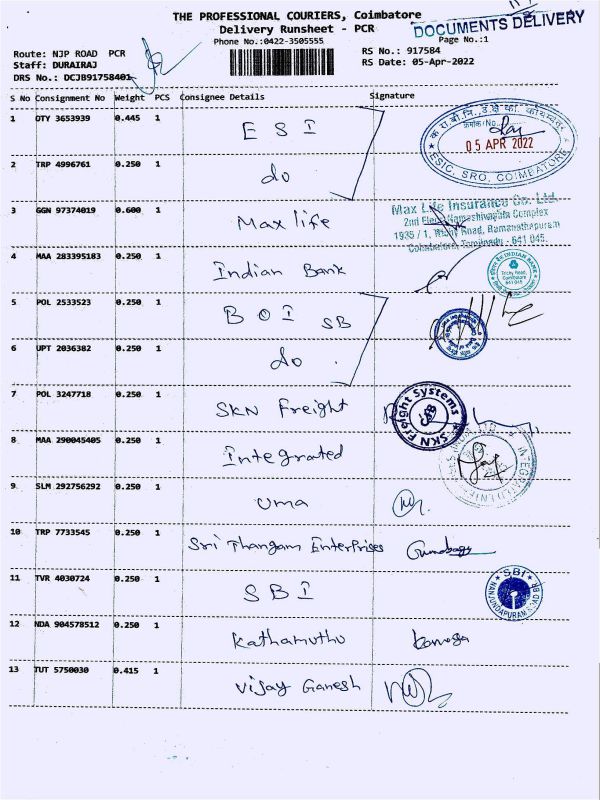 THE PROFESSIONAL COURIERS, Coimbatore
Delivery Runsheet - PCR
DOCUMENTS DELIVERY
Phone No.:0422-3505555
Page No.:1
Route: NJP ROAD PCR
RS No.: 917584
Staff: DURAIRAJ
RS Date: 05-Apr-2022
DRS No.: DCJ891758401
S No Consignment No Weight PCS Consignee Details Signature
1 OTY 3653939 0.445 1 E S I
05 APR 2022
ESIC, SRO, COIMBATORE
2 TRP 4996761 0.250 1 do
3 GGN 97374019 0.600 1 Max life
Max Life Insurance Co. Ltd.
2nd Floor, Complex
1935 / 1, Road, Ramanathapuram
Coimbatore, Tamilnadu - 641 045.
4 MAA 283395183 0.250 1 Indian Bank
INDIAN BANK
Trichy Road,
Coimbatore
641 045
5 POL 2533523 0.250 1 B O I SB
6 UPT 2036382 0.250 1 do
7 POL 3247718 0.250 1 SKN Freight
SKN Freight Systems
8 MAA 290045405 0.250 1 Integrated
INTEGRATED
9 SLM 292756292 0.250 1 Uma
10 TRP 7733545 0.250 1 Sri Thangam Enterprises
11 TVR 4030724 0.250 1 S B I
SBI
NANJUNDAPURAM ROAD BR
12 NDA 904578512 0.250 1 Kathamuthu
13 TUT 5750030 0.415 1 Vijay Ganesh